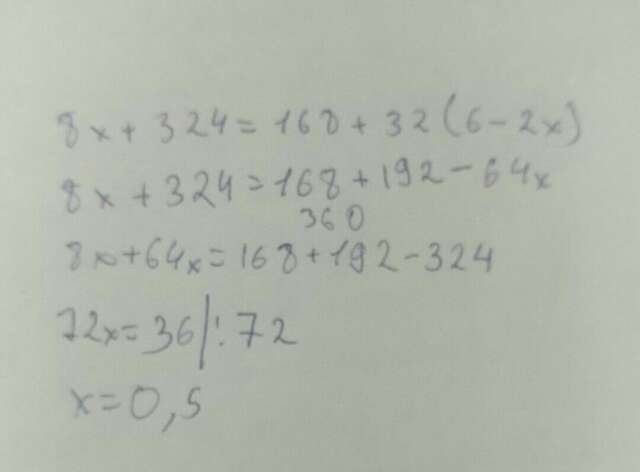 8x + 324 = 168 + 32 (6 - 2x)
8x + 324 = 168 + 192 - 64x
360
8x + 64x = 168 + 192 - 324
72x = 36 |: 72
x = 0,5